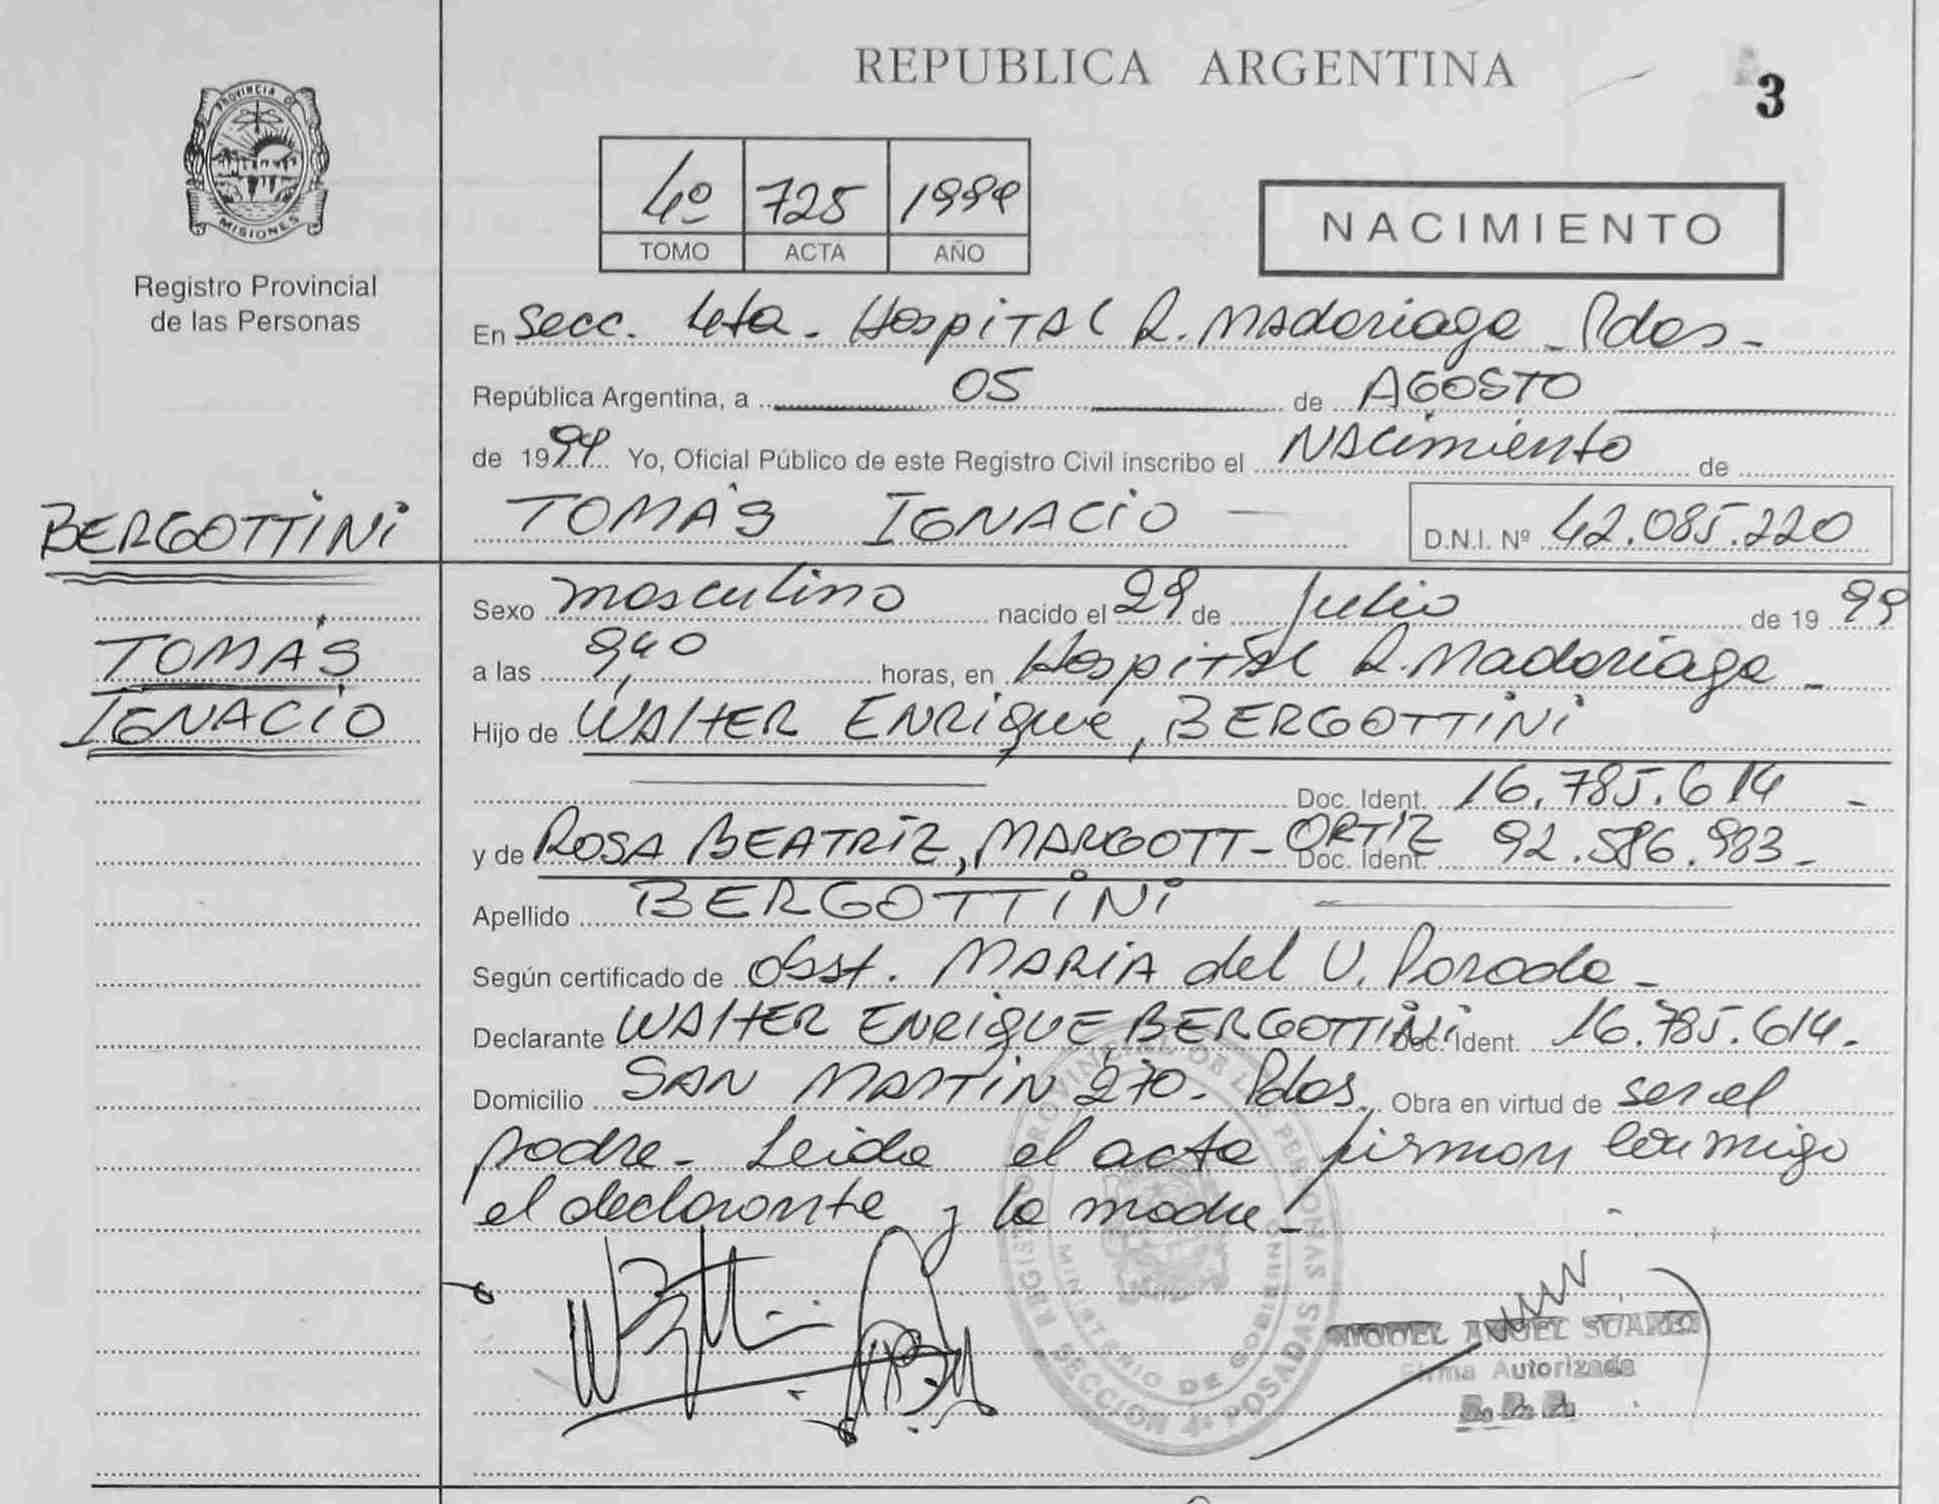 REPUBLICA ARGENTINA
3
PROVINCIA DE
MISIONES
Registro Provincial
de las Personas
4º 725 1999
TOMO ACTA AÑO
NACIMIENTO
En Secc. 4ta. Hospital R. Madariaga - Pdas -
República Argentina, a 05 de AGOSTO
de 1999 Yo, Oficial Público de este Registro Civil inscribo el Nacimiento de
BERGOTTINI
TOMÁS IGNACIO — D.N.I. Nº 42.085.220
Sexo masculino nacido el 29 de Julio de 1999
TOMÁS
a las 9,40 horas, en Hospital R. Madariaga -
IGNACIO
Hijo de WALTER ENRIQUE, BERGOTTINI
Doc. Ident. 16.785.614 -
y de ROSA BEATRIZ, MARGOTT - ORTIZ Doc. Ident. 92.586.983 -
Apellido BERGOTTINI
Según certificado de obst. MARIA del V. Parada -
Declarante WALTER ENRIQUE BERGOTTINI Doc. Ident. 16.785.614 -
Domicilio SAN MARTIN 270 - Pdas. Obra en virtud de ser el
padre - Leida el acta firman conmigo
el declarante y la madre -
REGISTRO PROVINCIAL DE LAS PERSONAS
MINISTERIO DE GOBIERNO
SECCION 4ª POSADAS
MIGUEL ANGEL SUAREZ
Firma Autorizada